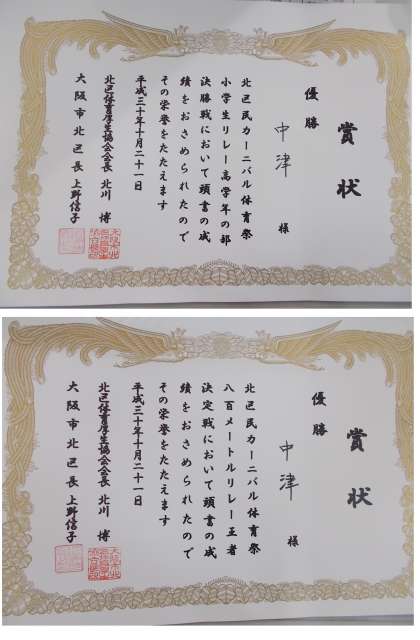 賞状
優勝
中津 様
北区民カーニバル体育祭
小学生リレー高学年の部
決勝戦において頭書の成
績をおさめられたので
その栄誉をたたえます
平成三十年十月二十一日
北区体育厚生協会会長 北川 博
大阪市北区長 上野信子
賞状
優勝
中津 様
北区民カーニバル体育祭
八百メートルリレー王者
決定戦において頭書の成
績をおさめられたので
その栄誉をたたえます
平成三十年十月二十一日
北区体育厚生協会会長 北川 博
大阪市北区長 上野信子